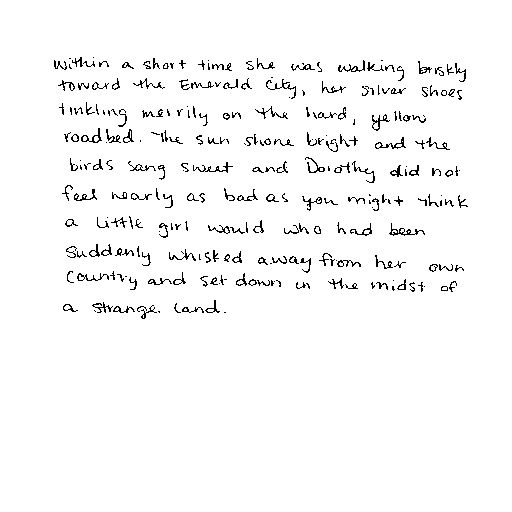 within a short time she was walking briskly
toward the Emerald City, her silver shoes
tinkling merrily on the hard, yellow
roadbed. The sun shone bright and the
birds sang sweet and Dorothy did not
feel nearly as bad as you might think
a little girl would who had been
suddenly whisked away from her own
country and set down in the midst of
a strange land.